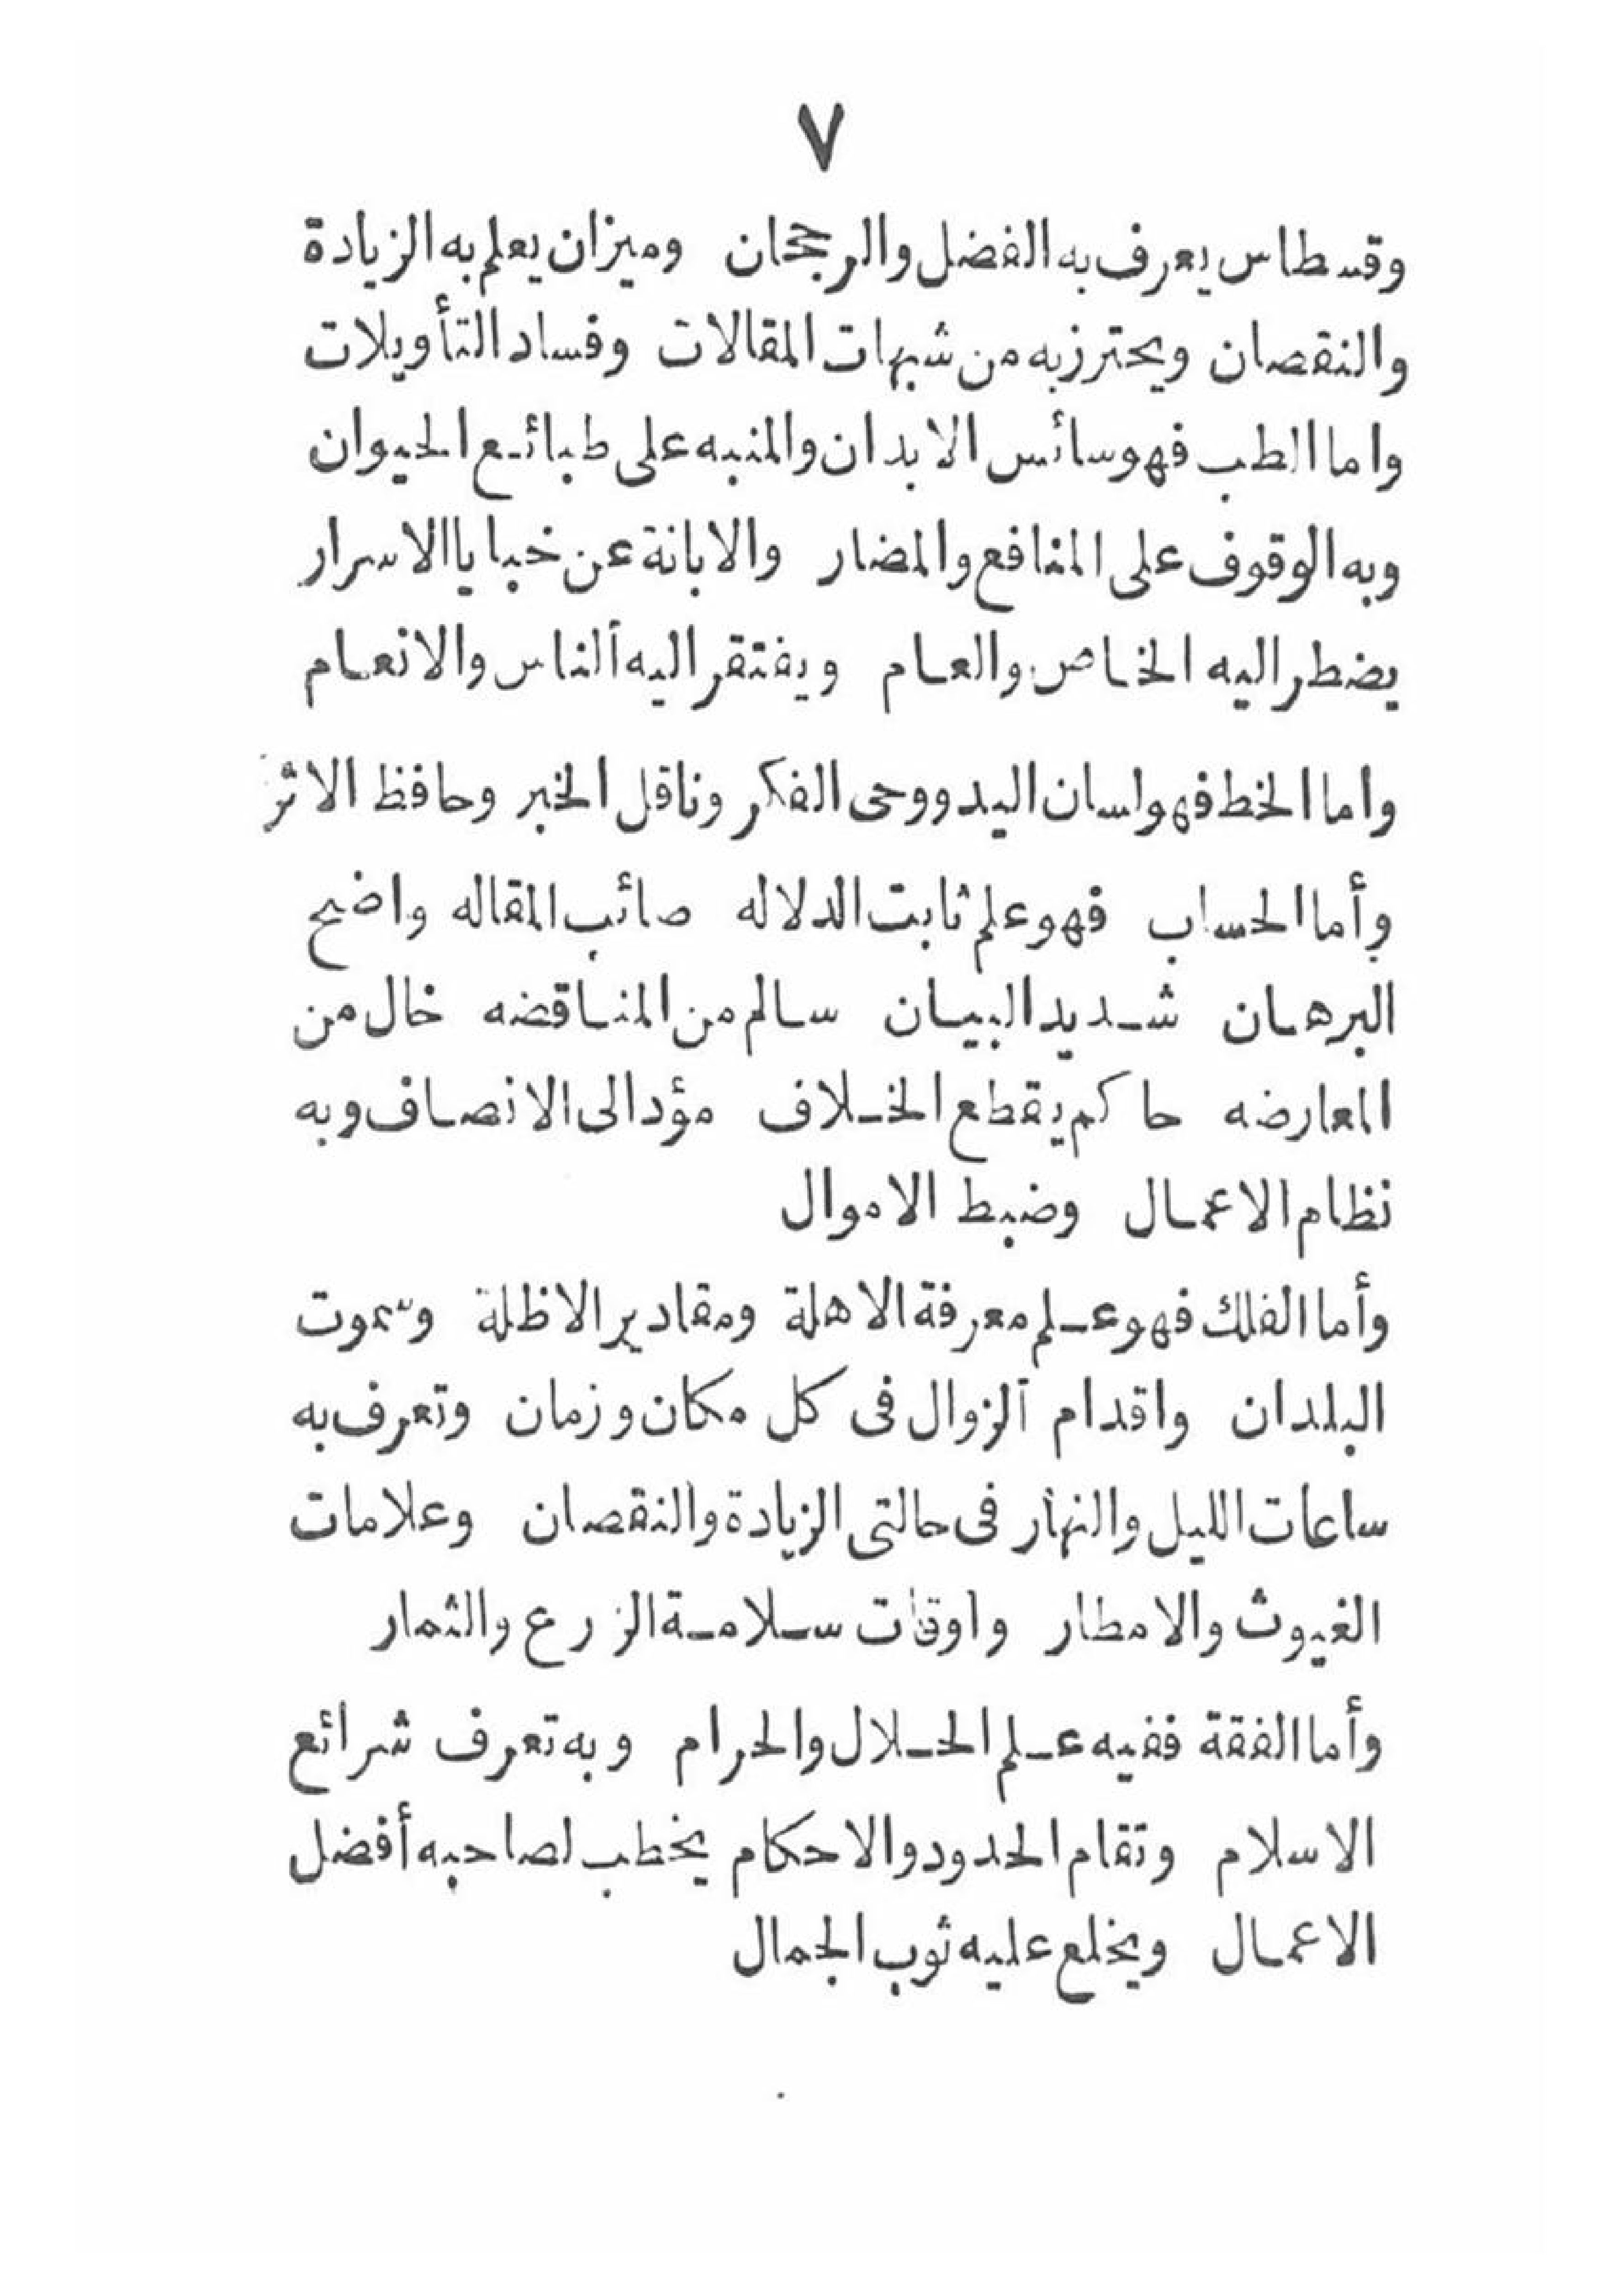 ٧
وقسطاس يعرف به الفضل والرجحان وميزان يعلم به الزيادة
والنقصان ويحترز به من شبهات المقالات وفساد التأويلات
واما الطب فهو سائس الابدان والمنبه على طبائع الحيوان
وبه الوقوف على المنافع والمضار والابانة عن خبايا الاسرار
يضطر اليه الخاص والعام ويفتقر اليه الناس والانعام
واما الخط فهو لسان اليد ووحى الفكر وناقل الخبر وحافظ الاثر
وأما الحساب فهو علم ثابت الدلاله صائب المقاله واضح
البرهان شديد البيان سالم من المناقضه خال من
المعارضه حاكم يقطع الخلاف مؤد الى الانصاف وبه
نظام الاعمال وضبط الاموال
وأما الفلك فهو علم معرفة الاهلة ومقادير الاظلة وسموت
البلدان واقدام الزوال فى كل مكان وزمان وتعرف به
ساعات الليل والنهار فى حالتى الزيادة والنقصان وعلامات
الغيوث والامطار واوقات سلامة الزرع والثمار
وأما الفقة ففيه علم الحلال والحرام وبه تعرف شرائع
الاسلام وتقام الحدود والاحكام يخطب لصاحبه أفضل
الاعمال ويخلع عليه ثوب الجمال